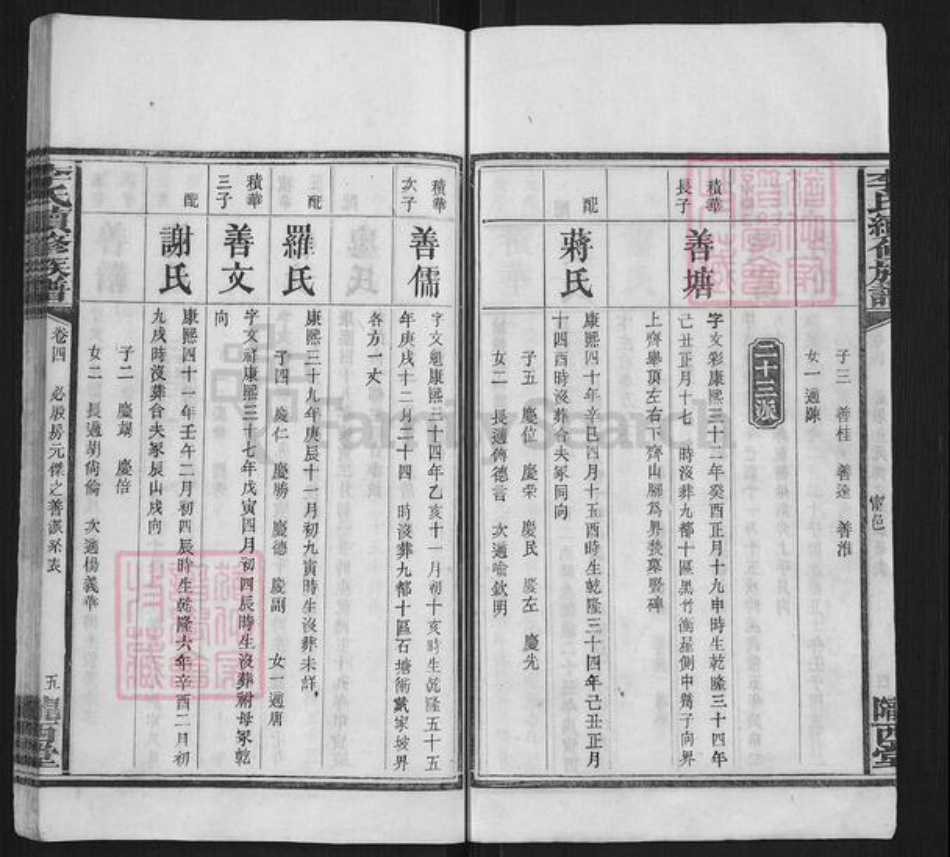 李氏續修族譜
寗邑
隴西堂
子三 善桂 善達 善淮
女一適陳
二十三派
積華長子
善塘
字文彩康熙三十二年癸酉正月十九申時生乾隆三十四年
己丑正月十七 時沒葬九都十區黑竹衝星側申艮子向界
上齊舉頂左右下齊山腳為界發墓豎碑
配
蔣氏
康熙四十年辛巳四月十五酉時生乾隆三十四年己丑正月
十四酉時沒葬合夫冢同向
子五 慶位 慶榮 慶民 慶左 慶先
女二 長適傅德言 次適喻欽明
積華次子
善儒
字文魁康熙三十四年乙亥十一月初十亥時生乾隆五十五
年庚戌十二月二十四 時沒葬九都十區石塘衝戴家坡界
各方一丈
配
羅氏
康熙三十九年庚辰十一月初九寅時生沒葬未詳
子四 慶仁 慶勝 慶德 慶副 女一適唐
積華三子
善文
字文祥康熙三十七年戊寅四月初四辰時生沒葬祔母冢乾
向
配
謝氏
康熙四十一年壬午二月初四辰時生乾隆六年辛酉二月初
九戌時沒葬合夫冢辰山戌向
子二 慶瑞 慶倍
女二 長適胡尚倫 次適楊義華
李氏續修族譜
卷四 必股房元傑之善派系表
五
隴西堂
FamilySearch